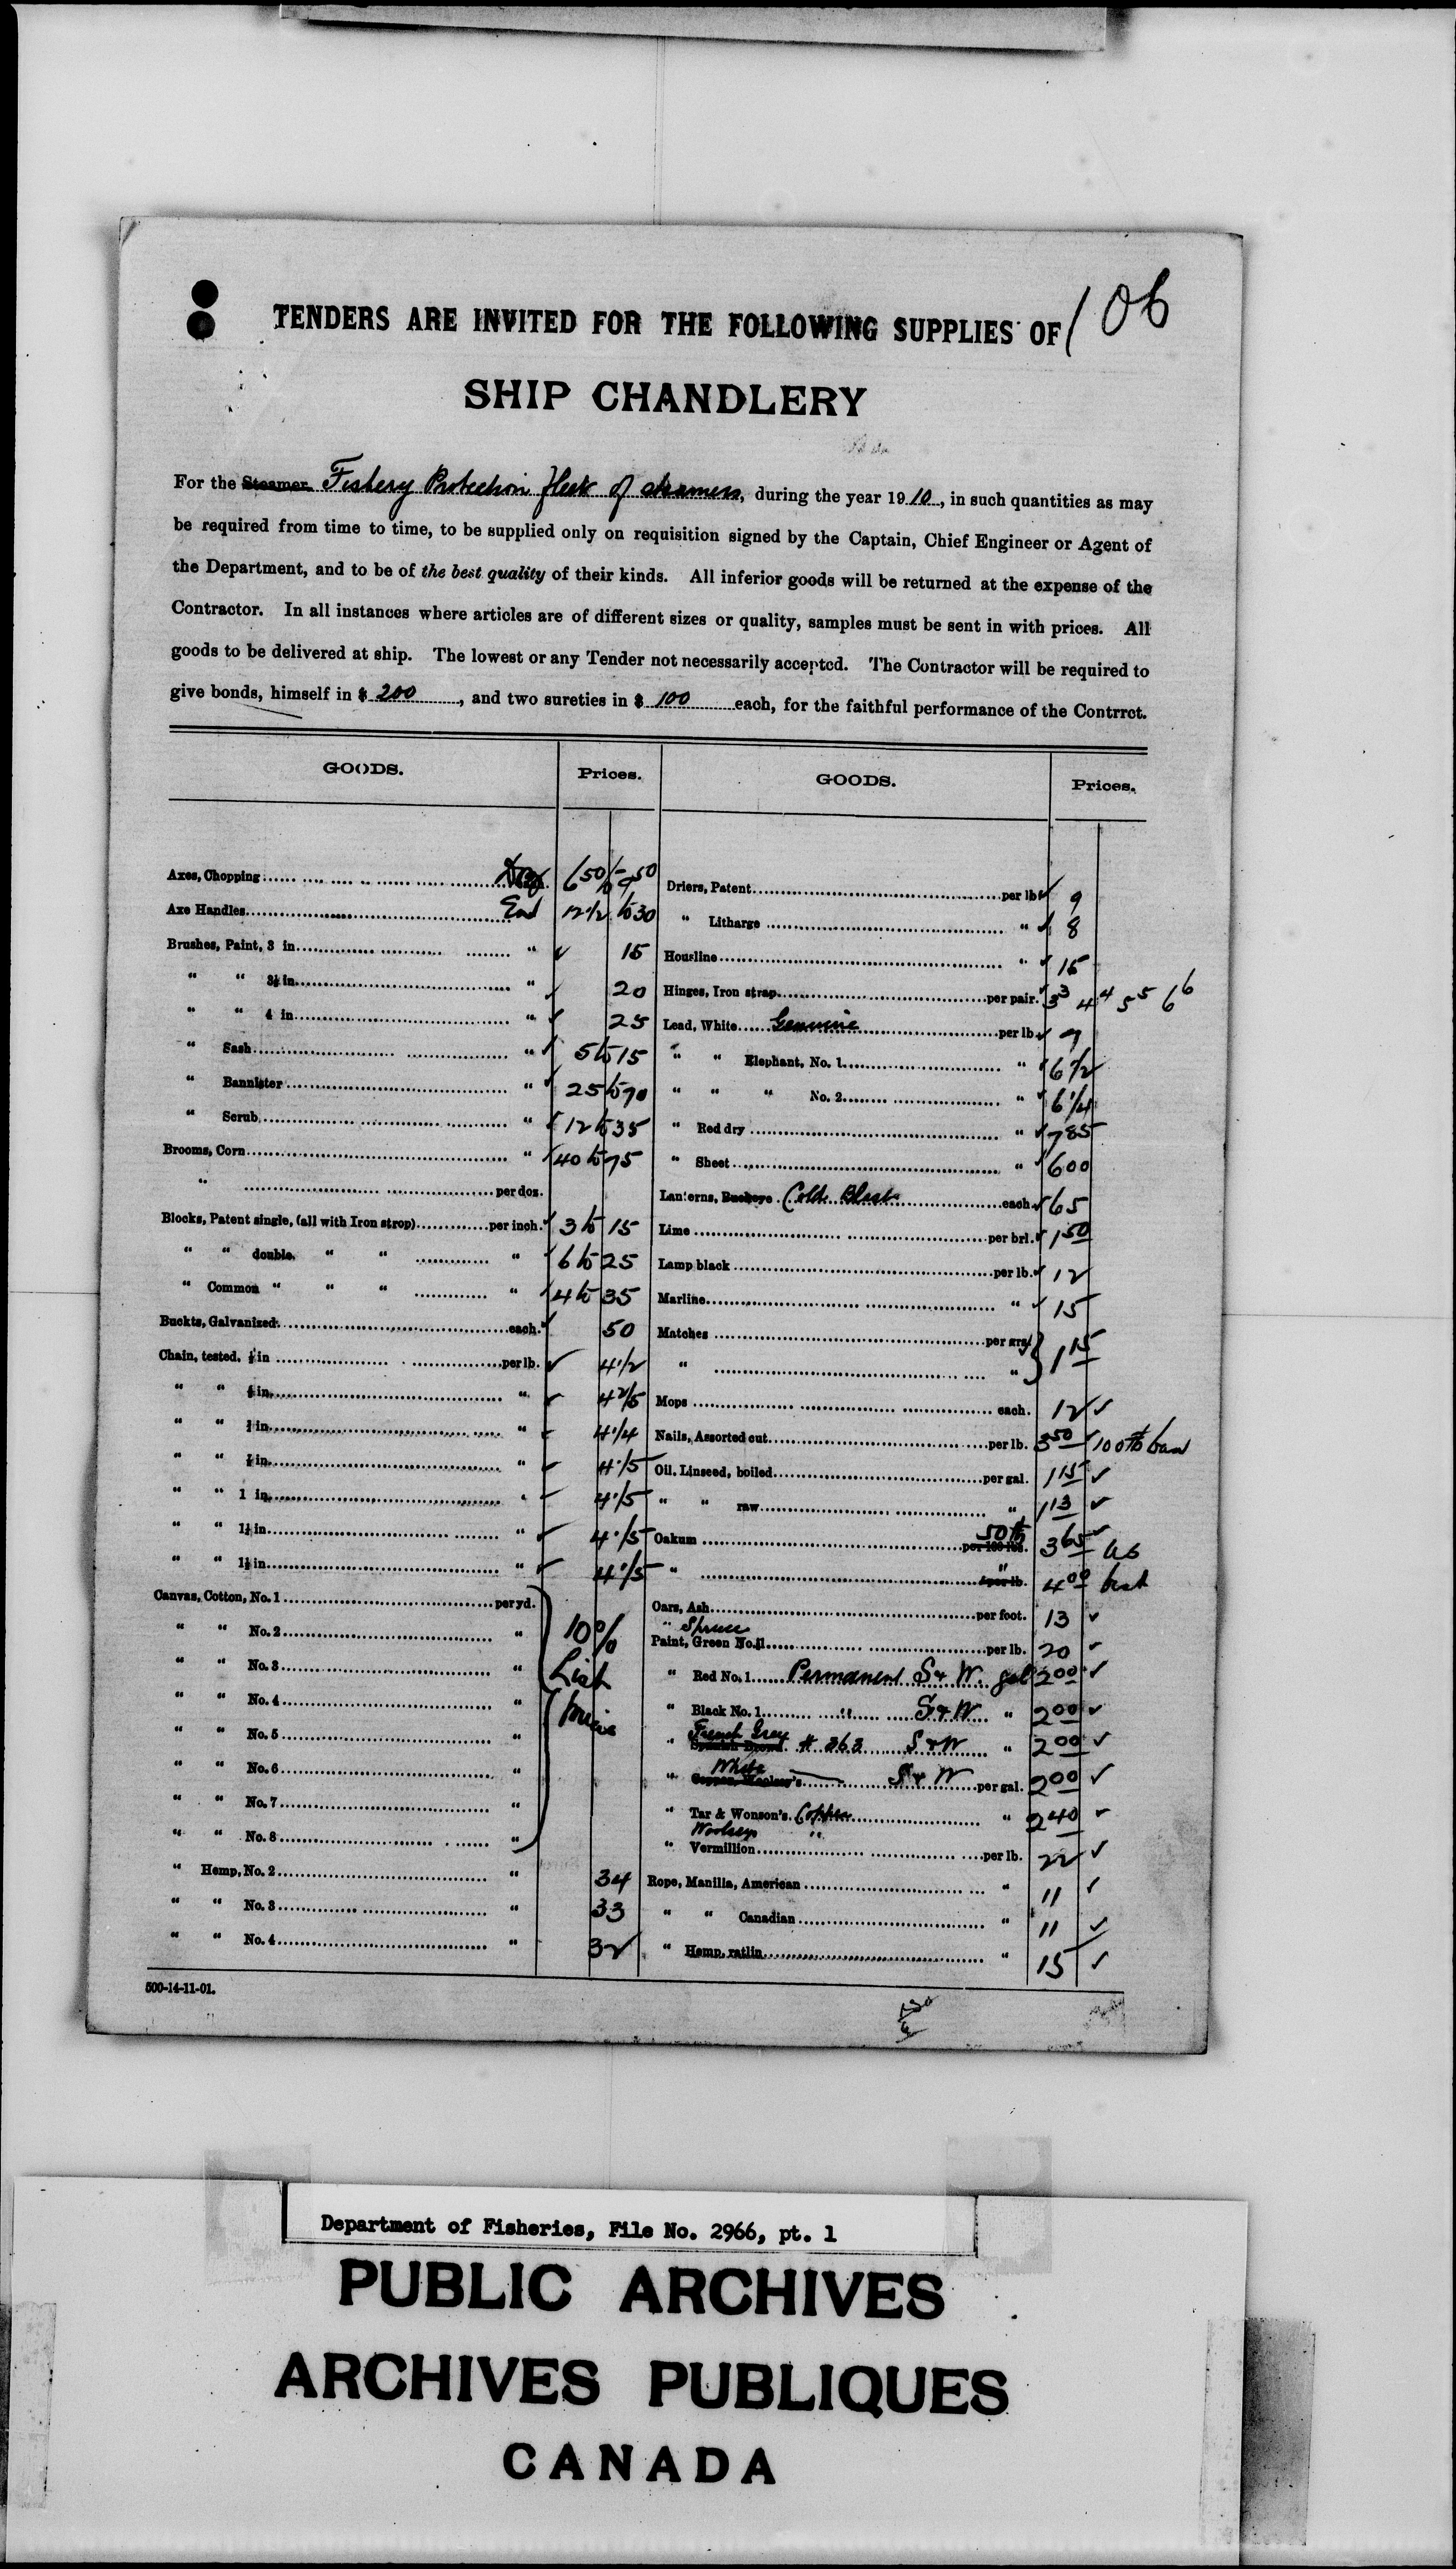 106
TENDERS ARE INVITED FOR THE FOLLOWING SUPPLIES OF
SHIP CHANDLERY
For the Steamer Fishery Protection fleet of steamers, during the year 1910, in such quantities as may
be required from time to time, to be supplied only on requisition signed by the Captain, Chief Engineer or Agent of
the Department, and to be of the best quality of their kinds. All inferior goods will be returned at the expense of the
Contractor. In all instances where articles are of different sizes or quality, samples must be sent in with prices. All
goods to be delivered at ship. The lowest or any Tender not necessarily accepted. The Contractor will be required to
give bonds, himself in $ 200, and two sureties in $ 100 each, for the faithful performance of the Contrrct.
GOODS. Prices.
Axes, Chopping 6 50 to 9 50
Axe Handles 12 1/2 to 30
Brushes, Paint, 3 in. " ✓ 15
" " 3½ in. " ✓ 20
" " 4 in. " ✓ 25
" Sash " ✓ 5 to 15
" Bannister " ✓ 25 to 70
" Scrub " ✓ 12 to 35
Brooms, Corn " ✓ 40 to 75
" per doz.
Blocks, Patent single, (all with Iron strop) per inch. ✓ 3 to 15
" " double. " " " ✓ 6 to 25
" Common " " " " ✓ 4 to 35
Buckts, Galvanized each. ✓ 50
Chain, tested, in per lb. ✓ 4 1/2
" " in. " ✓ 4 2/5
" " in. " ✓ 4 1/4
" " in. " ✓ 4 1/5
" " 1 in. " ✓ 4 1/5
" " in. " ✓ 4 1/5
" " in. " ✓ 4 1/5
Canvas, Cotton, No. 1 per yd.
" " No. 2 " 10%
" " No. 3 " List
" " No. 4 "
" " No. 5 "
" " No. 6 "
" " No. 7 "
" " No. 8 "
" Hemp, No. 2 " 34
" " No. 3 " 33
" " No. 4 " 32
GOODS. Prices.
Driers, Patent per lb ✓ 9
" Litharge " ✓ 8
Housline " ✓ 15
Hinges, Iron strap per pair. ✓ 3 3 4 4 5 5 6 6
Lead, White Genuine per lb ✓ 9
" " Elephant, No. 1 " ✓ 6 1/2
" " " No. 2 " ✓ 6 1/4
" Red dry " ✓ 7 85
" Sheet " ✓ 6 00
Lanterns, Buckeye Cold Blast each ✓ 65
Lime per brl. ✓ 1 50
Lamp black per lb. ✓ 12
Marline " ✓ 15
Matches per grs. 1 15
" "
Mops each. 12 ✓
Nails, Assorted cut per lb. 3 50 ✓ 100 lb
Oil, Linseed, boiled per gal. 1 15 ✓
" " raw " 1 13 ✓
Oakum 50 lb per 100 lbs. 3 65 ✓
" " per lb. 4 00 best
Oars, Ash per foot. 13 ✓
" Spruce
Paint, Green No. 1 per lb. 20 ✓
" Red No. 1 Permanent S & W. gal 2 00 ✓
" Black No. 1 " S & W " 2 00 ✓
" French Grey Spanish Brown # 363 S & W " 2 00 ✓
" White Copper, Woolsey's S & W per gal. 2 00 ✓
" Tar & Wonson's Copper " 2 40 ✓
Woolsey "
" Vermillion per lb. 22 ✓
Rope, Manilla, American " 11 ✓
" " Canadian " 11 ✓
" Hemp, ratlin " 15 ✓
500-14-11-01.
Department of Fisheries, File No. 2966, pt. 1
PUBLIC ARCHIVES
ARCHIVES PUBLIQUES
CANADA